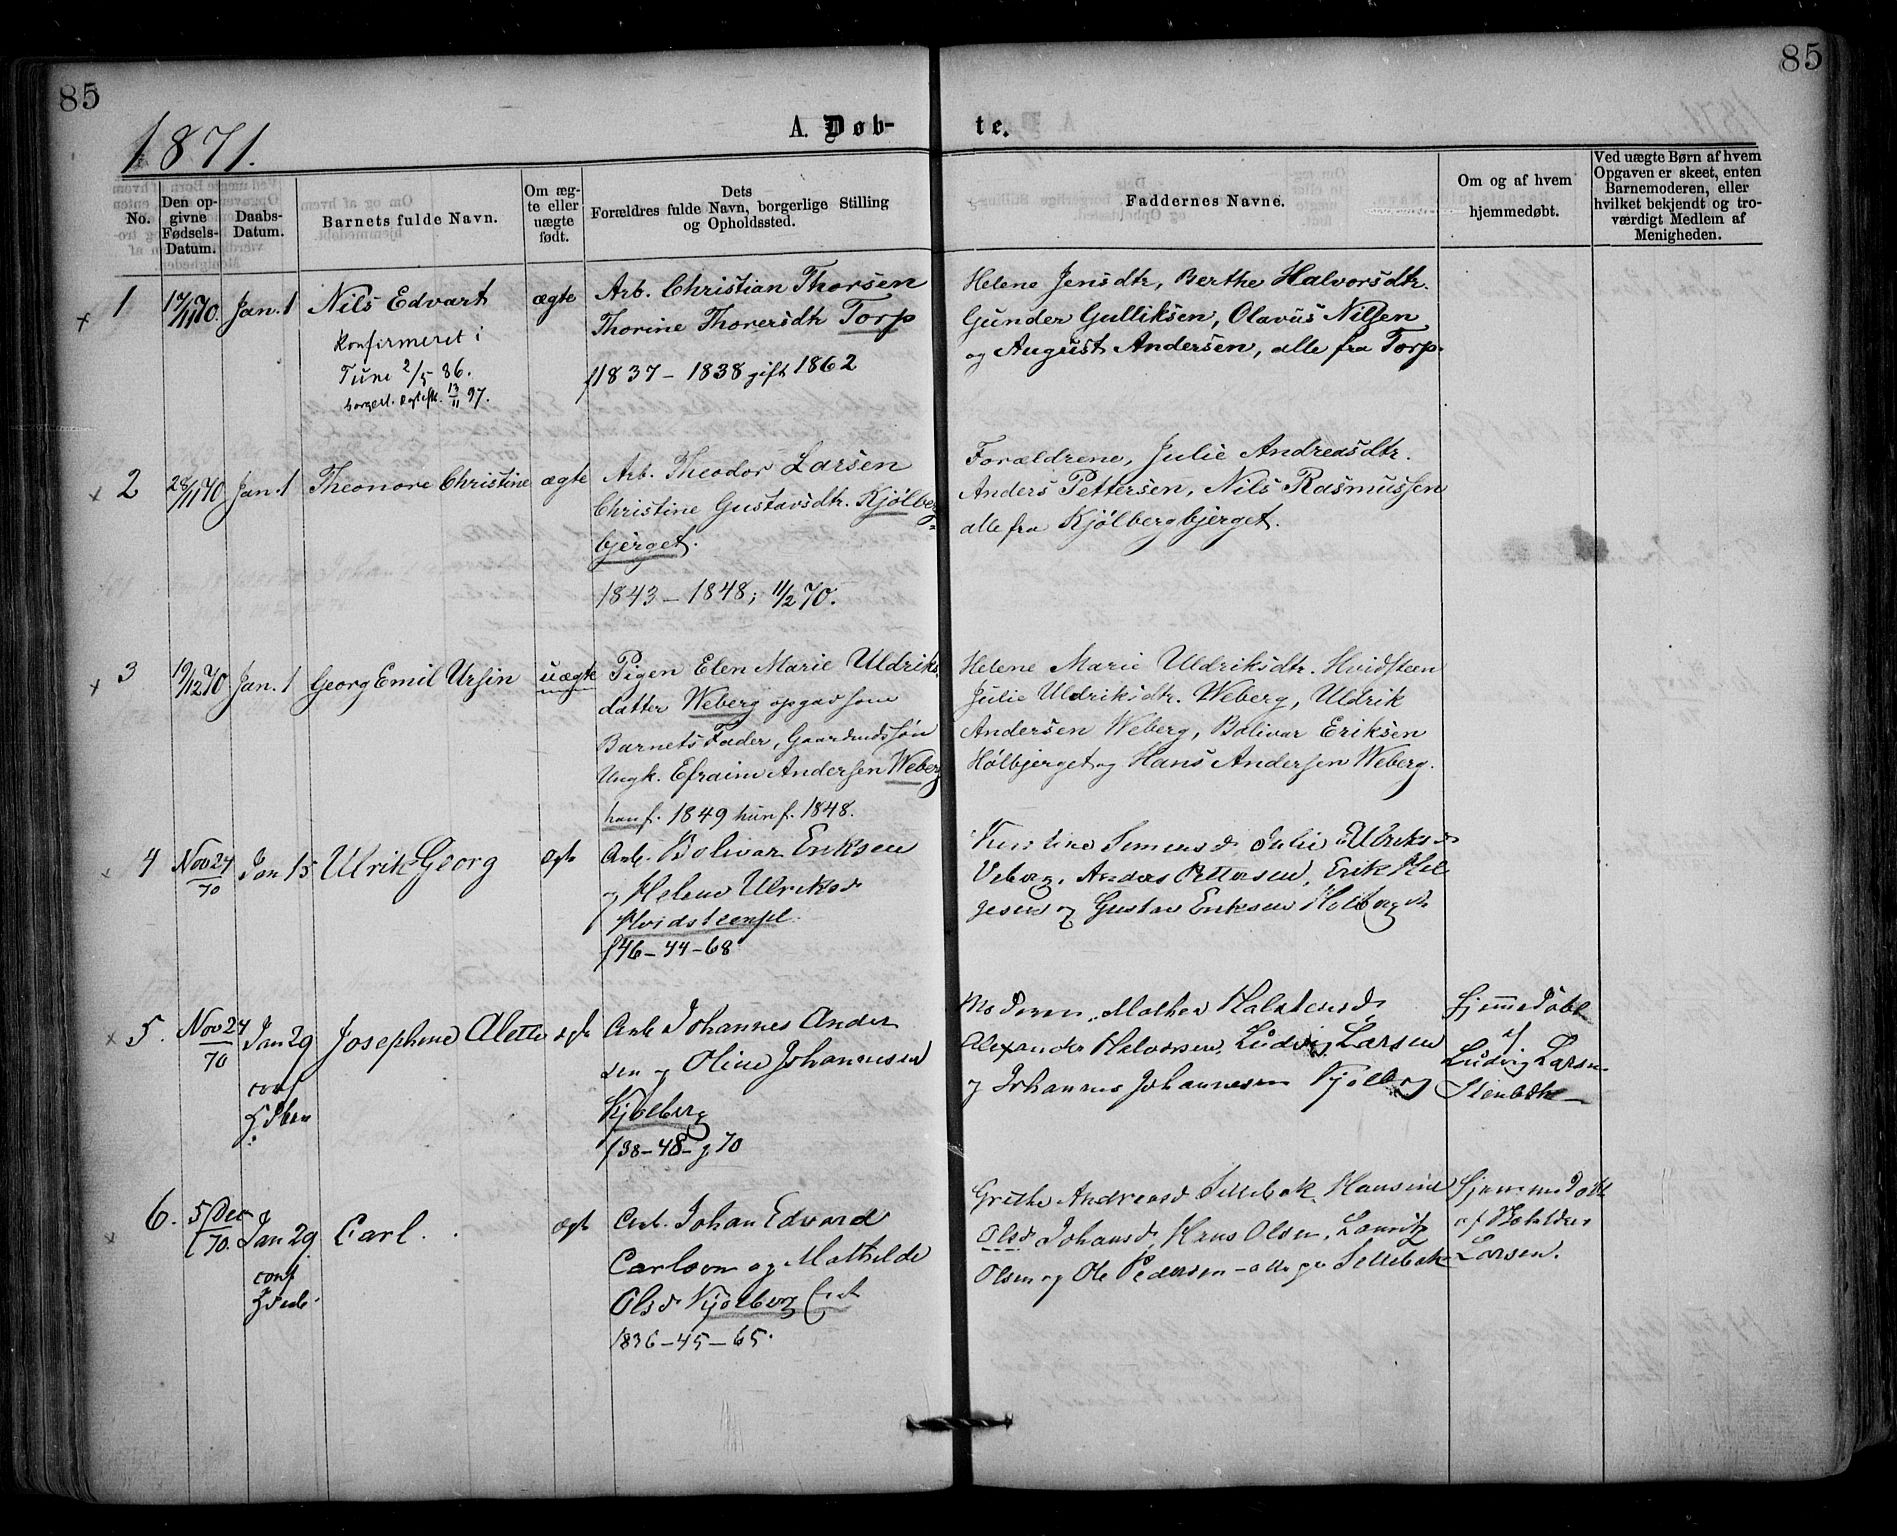 85
85
1871.
A. Døb-
te.
No.
Den op-
givne
Fødsels-
Datum.
Daabs-
Datum.
Barnets fulde Navn.
Om æg-
te eller
uægte
født.
Dets
Forældres fulde Navn, borgerlige Stilling
og Opholdssted.
Faddernes Navne.
Om og af hvem
hjemmedøbt.
Ved uægte Børn af hvem
Opgaven er skeet, enten
Barnemoderen, eller
hvilket bekjendt og tro-
værdigt Medlem af
Menigheden.
x 1 17/11 70. Jan. 1 Nils Edvart ægte
Konfirmeret i
Tune 2/5 86.
13/11 97.
Arb. Christian Thorsen
Thorine Thorersdtr Torp
f 1837 – 1838 gift 1862
Helene Jensdtr, Berthe Halvorsdtr.
Gunder Gulliksen, Olavus Nilsen
og August Andersen, alle fra Torp.
x 2 28/11 70 Jan. 1 Theonore Christine ægte
Arb. Theodor Larsen
Christine Gustavsdtr. Kjølberg=
bjerget.
1843 – 1848; 11/2 70.
Forældrene, Julie Andreasdtr.
Anders Pettersen, Nils Rasmussen
alle fra Kjølbergbjerget.
x 3 19/12 70 Jan. 1 Georg Emil Ursin uægte
Pigen Elen Marie Uldriks
datter Weberg opgav som
Barnets Fader, Gaardmdssøn
Ungk. Efraim Andersen Weberg
han f. 1849 hun f. 1848.
Helene Marie Uldriksdtr. Hvidsteen
Julie Uldriksdtr. Weberg, Uldrik
Andersen Weberg, Bolivar Eriksen
Holbjerget og Hans Andersen Weberg.
x 4 Nov 24/70 Jan 15 Ulrik Georg ægte
Arb. Bolivar Eriksen
og Helene Ulriksd
Hvidsteenpl.
f 46 – 44 – 68
Julie Ulriksd
Veberg, Anders Pettersen, Erik Hel
gesen og Gustav Eriksen
x 5. Nov 24/70 Jan 29 Josephine Alette ægte
conf
Arb Johannes Ander
sen og Oline Johannesen
Kjølberg
f 38 – 48 – g 70
Moderen, Mathea Halstensd
Alexander Halvorsen, Ludvig Larsen
og Johannes Johannesen Kjølberg
Hjemmedøbt
af
Ludvig Larsen
x 6. 5 Dec/70. Jan 29 Carl. ægte
conf
Arb. Johan Edvard
Carlson og Mathilde
Olsd Kjølberg
1836 – 45 – 65.
Grethe Andreasd Sellebak, Hansine
Olsd Johansd, Hans Olsen, Lauritz
Olsen og Ole Pedersen – alle paa Sellebak
Hjemmedøbt
af
Larsen.